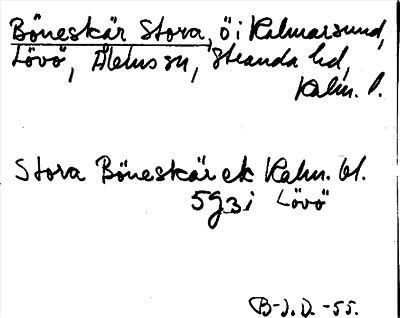 Böneskär Stora, ö i Kalmarsund,
Lövö, Ålems sn, Stranda hd,
Kalm. l.
Stora Böneskär ek Kalm. bl.
5g3i Lövö
B-J.D.-55.